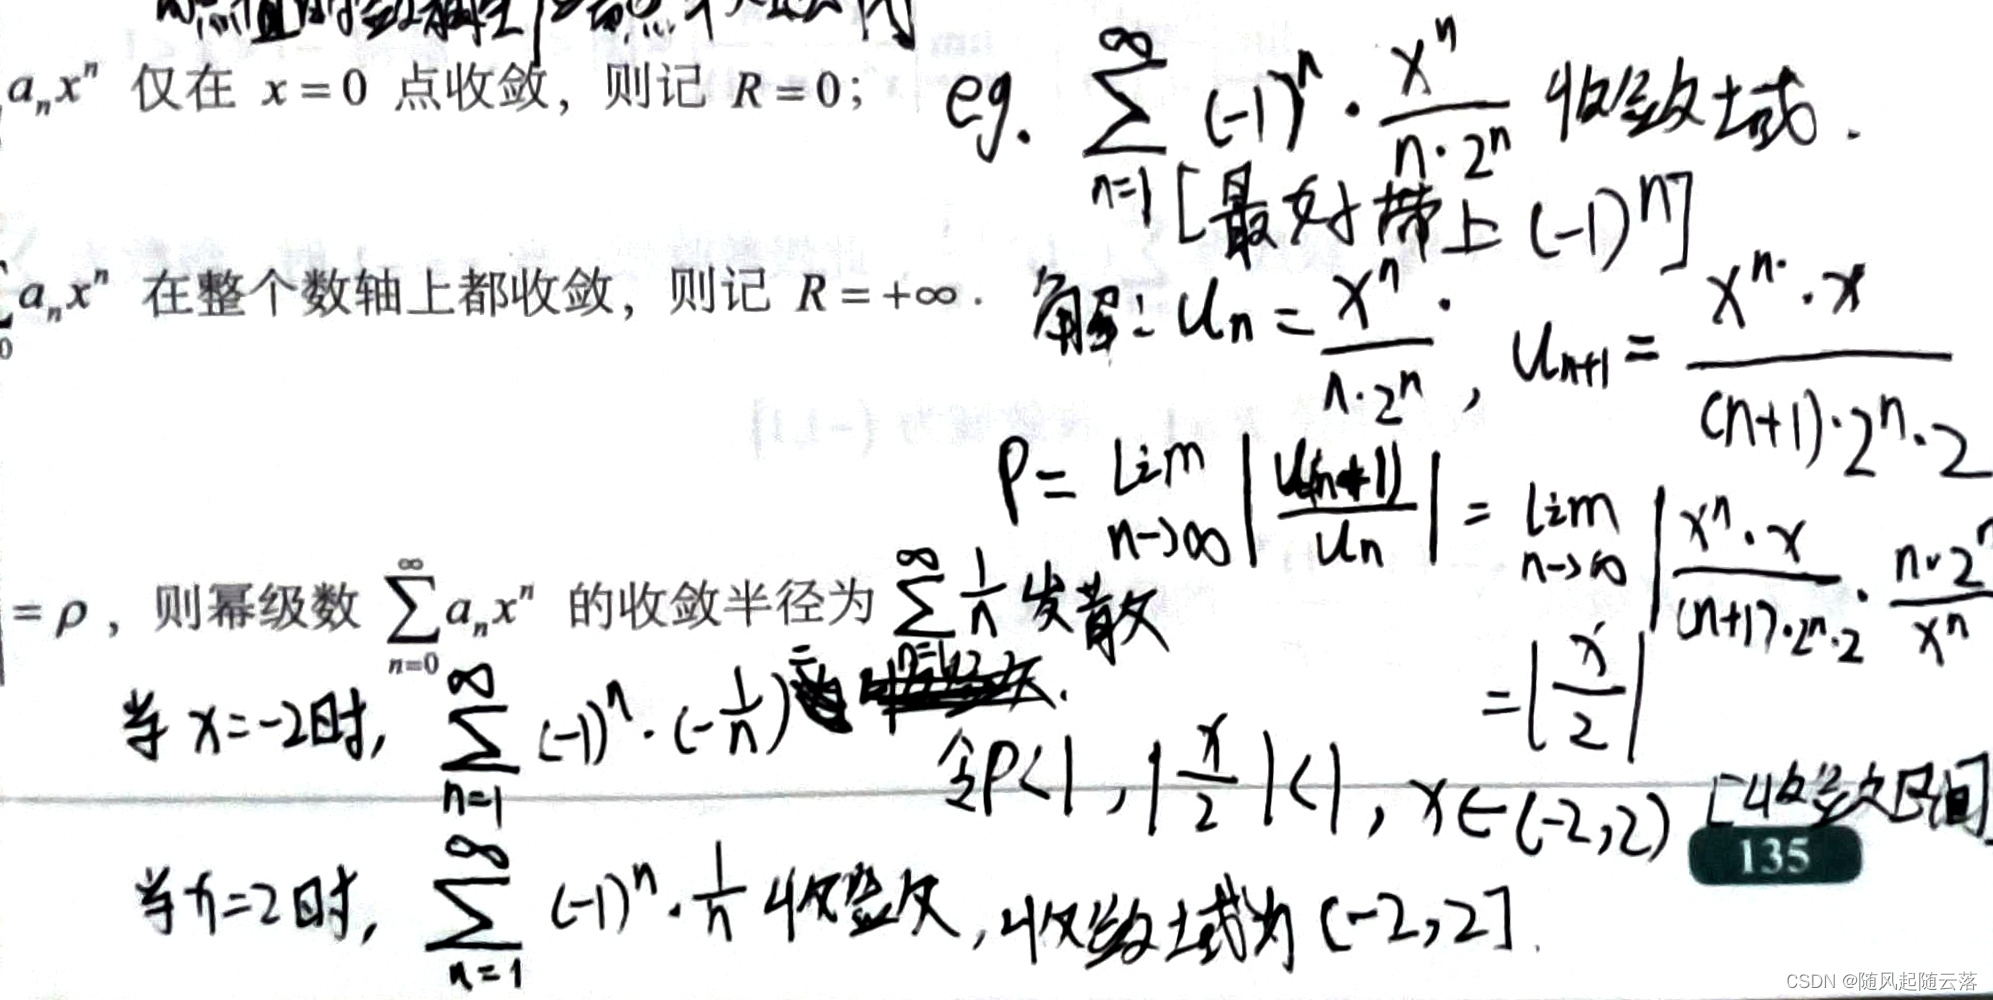 a_n x^n 仅在 x = 0 点收敛，则记 R = 0；
eg. ∑_{n=1}^{∞} (-1)^n · x^n/(n·2^n) 收敛域.
[最好带上 (-1)^n]
a_n x^n 在整个数轴上都收敛，则记 R = +∞ .
解: U_n = x^n/(n·2^n) , U_{n+1} = (x^n·x)/((n+1)·2^n·2)
ρ = lim_{n→∞} |U(n+1)/U_n| = lim_{n→∞} |(x^n·x)/((n+1)·2^n·2) · (n·2^n)/x^n
= |x/2|
= ρ ，则幂级数 ∑_{n=0}^{∞} a_n x^n 的收敛半径为
∑_{n=1}^{∞} 1/n 发散
当 x=-2时, ∑_{n=1}^{∞} (-1)^n · (-1/n) =
令ρ<1 , |x/2|<1 , x∈(-2,2) [收敛区间]
135
当x=2时, ∑_{n=1}^{∞} (-1)^n · 1/n 收敛, 收敛域为 (-2,2].
CSDN @随风起随云落